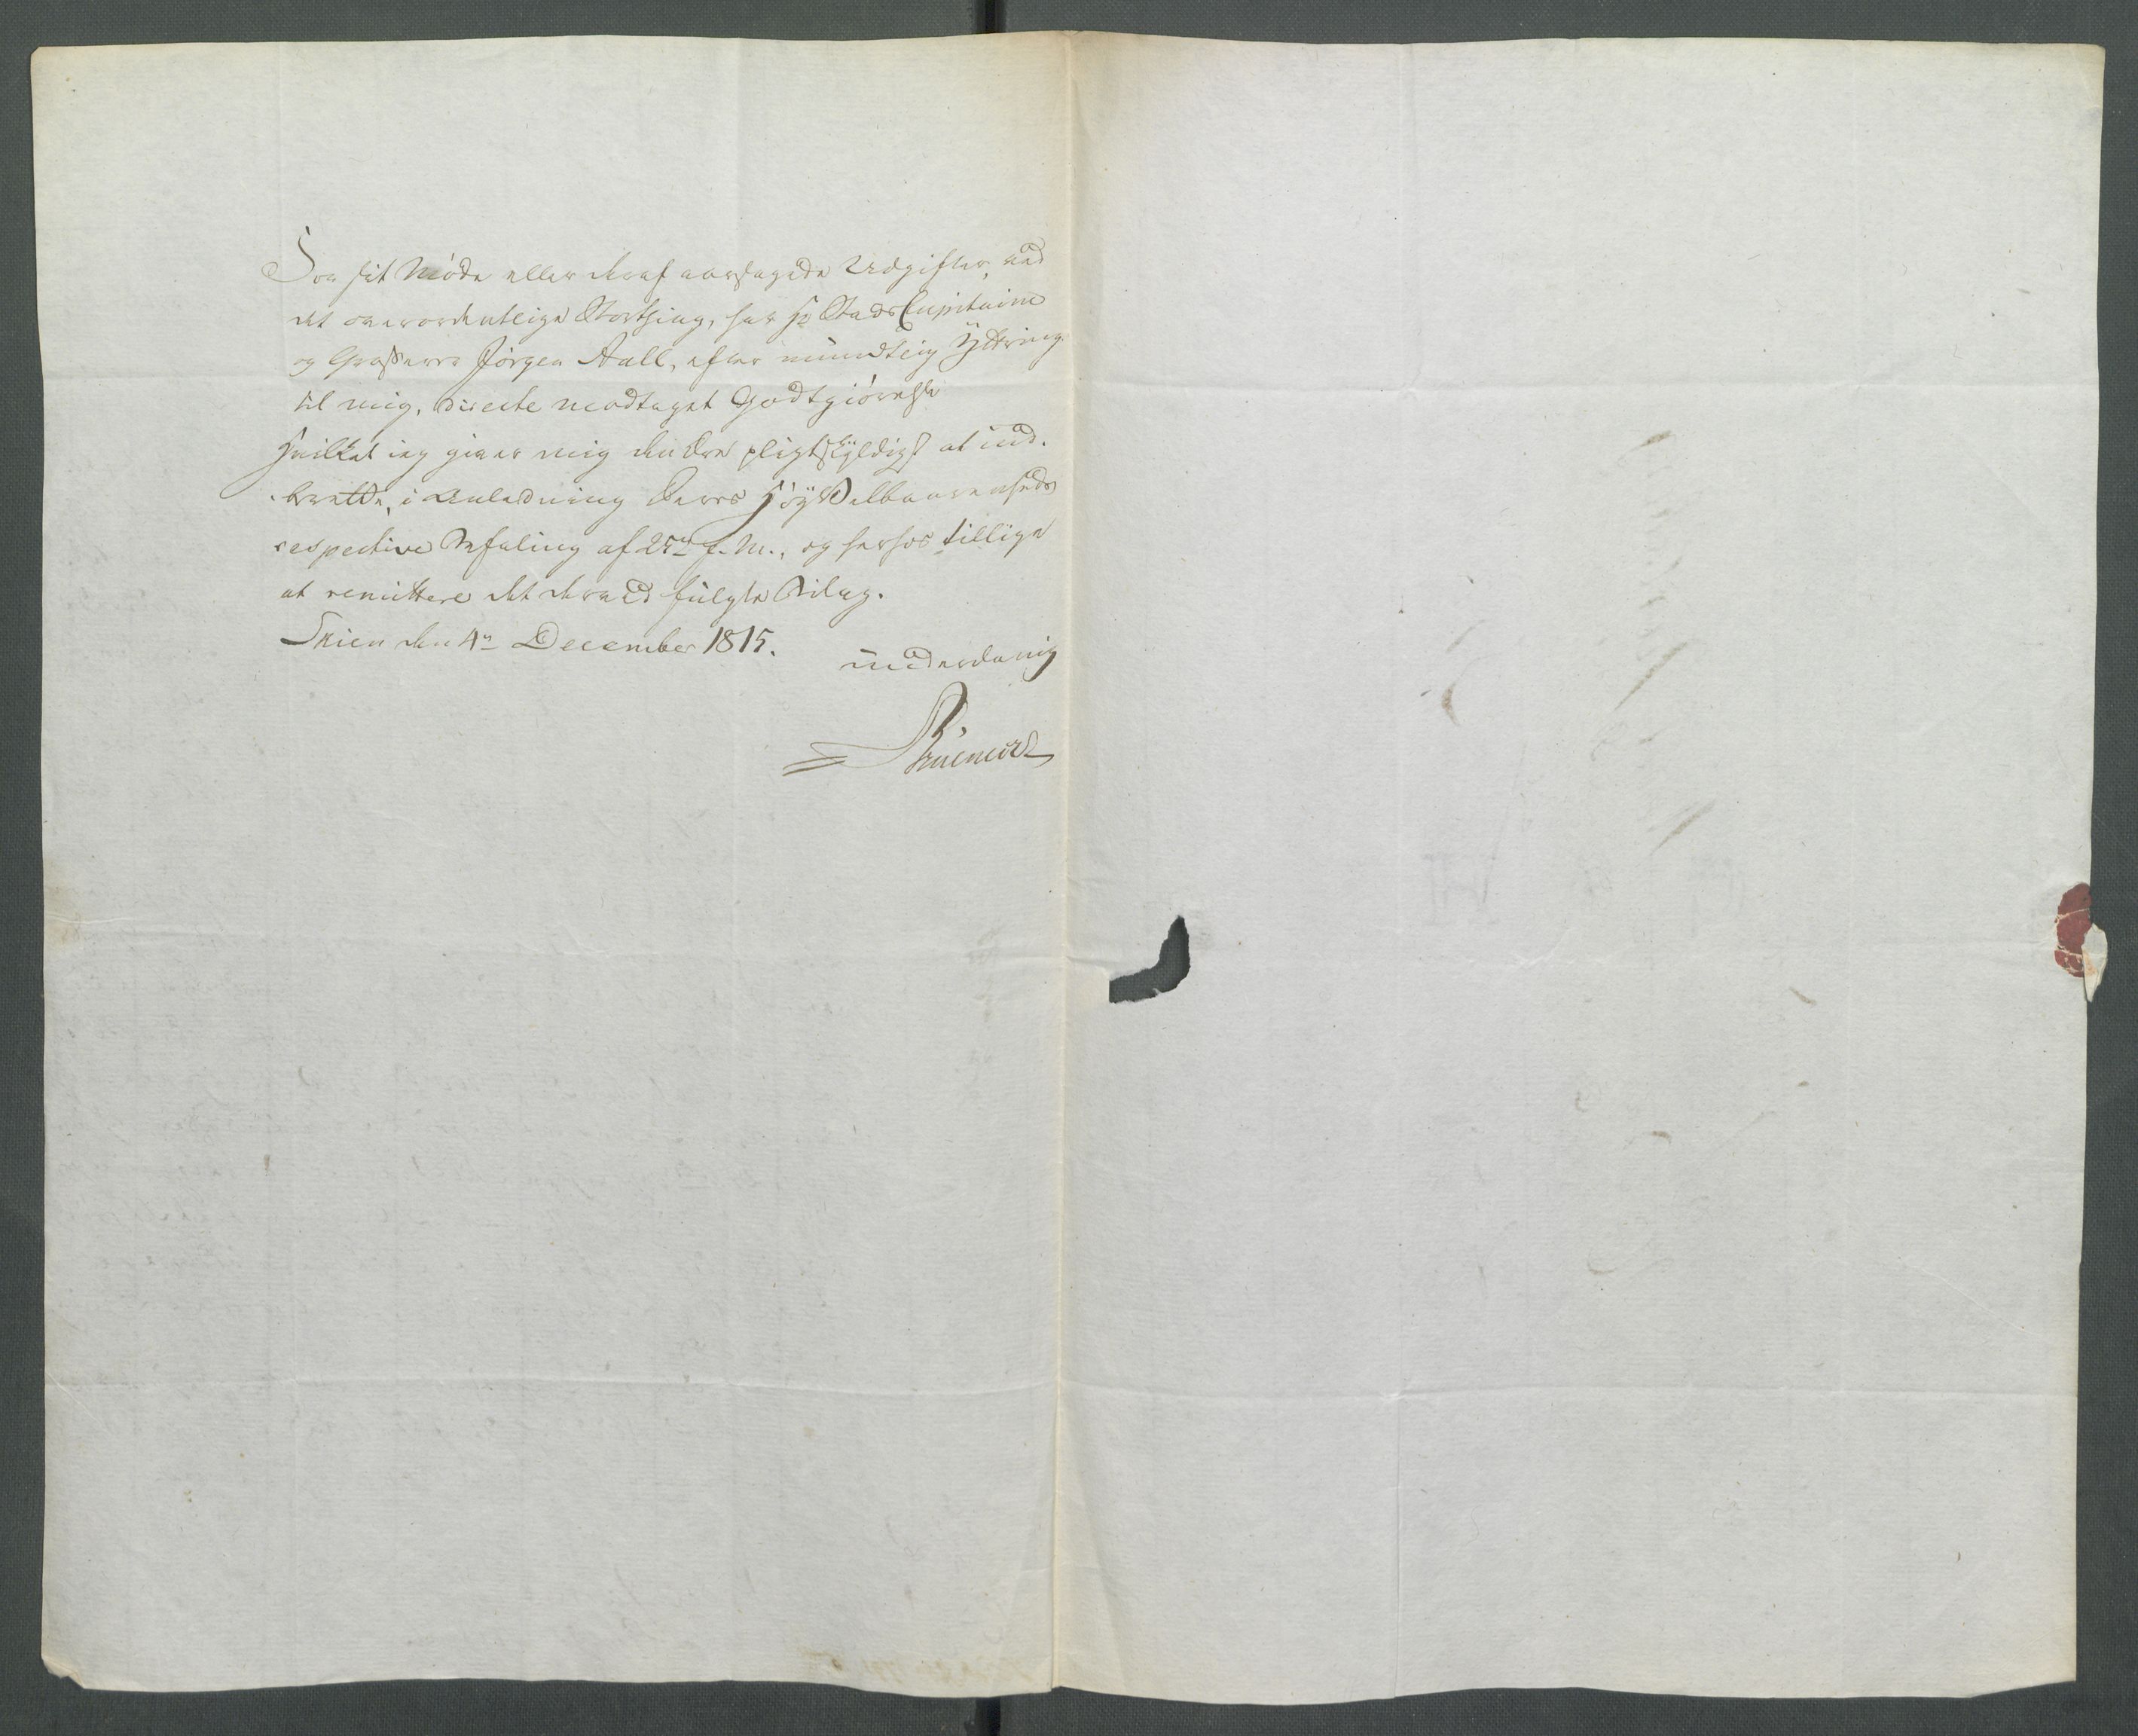 For sit Møde eller deraf aarsagede Udgifter, ved
det overordentlige Storthing, har Hr StadsCapitaine
og Grosserer Jørgen Aall, efter mundtlig Yttring
til mig, directe modtaget Godtgiørelse
Hvilket ieg giver mig den Ære pligtskyldigst at ind-
berette, i Anledning Deres HøyVelbaarenheds
respective Befaling af 25de f. M., og herhos tillige
at remittere det derved fulgte Bilag.
Skien den 4de December 1815.
underdanig